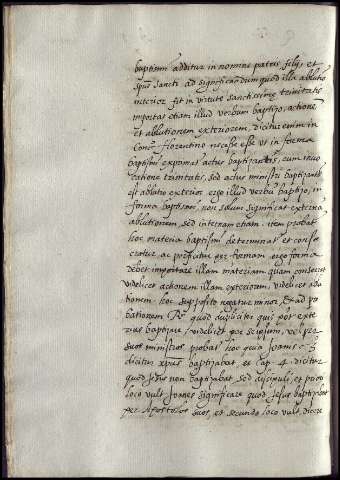 baptism additur in nomine patris filij, et
spus sancti ad significandum quod illa ablutio
interior fit in virtute sanctissime trinitatis
importas etiam illud verbum baptizo, actionem
et ablutionem exteriorem, dicitur enim in
Conco florentino necesse esse ut in forma
baptismi exprimas actus baptizantis, cum invo
catione trinitatis, sed actus ministri baptizantis
est ablutio exterior ergo illud verbu baptizo, in
forma baptismi non solum significat externa
ablutionem, sed internam etiam. item probat
hoc materia baptismi determinat et conse
cratur ac perficitur per formam ergo forma
debet importare illam materiam quam consecrat
videlicet actionem illam exteriorem, videlicet ablu
tionem. hoc supposito negatur minor. Et ad pro
bationem quod dupliciter quis pot exte
rius baptizare, videlicet per seipsum, vel per
suos ministros, probas hoc quia Joanis 3
dicitur xpus baptizabat, et cap. 4. dicitur
quod Jesus non baptizabat sed discipuli, et primo
loco vult Joanes significare quod Jesus baptizabat
per Apostolos suos, et secundo loco vult dicere